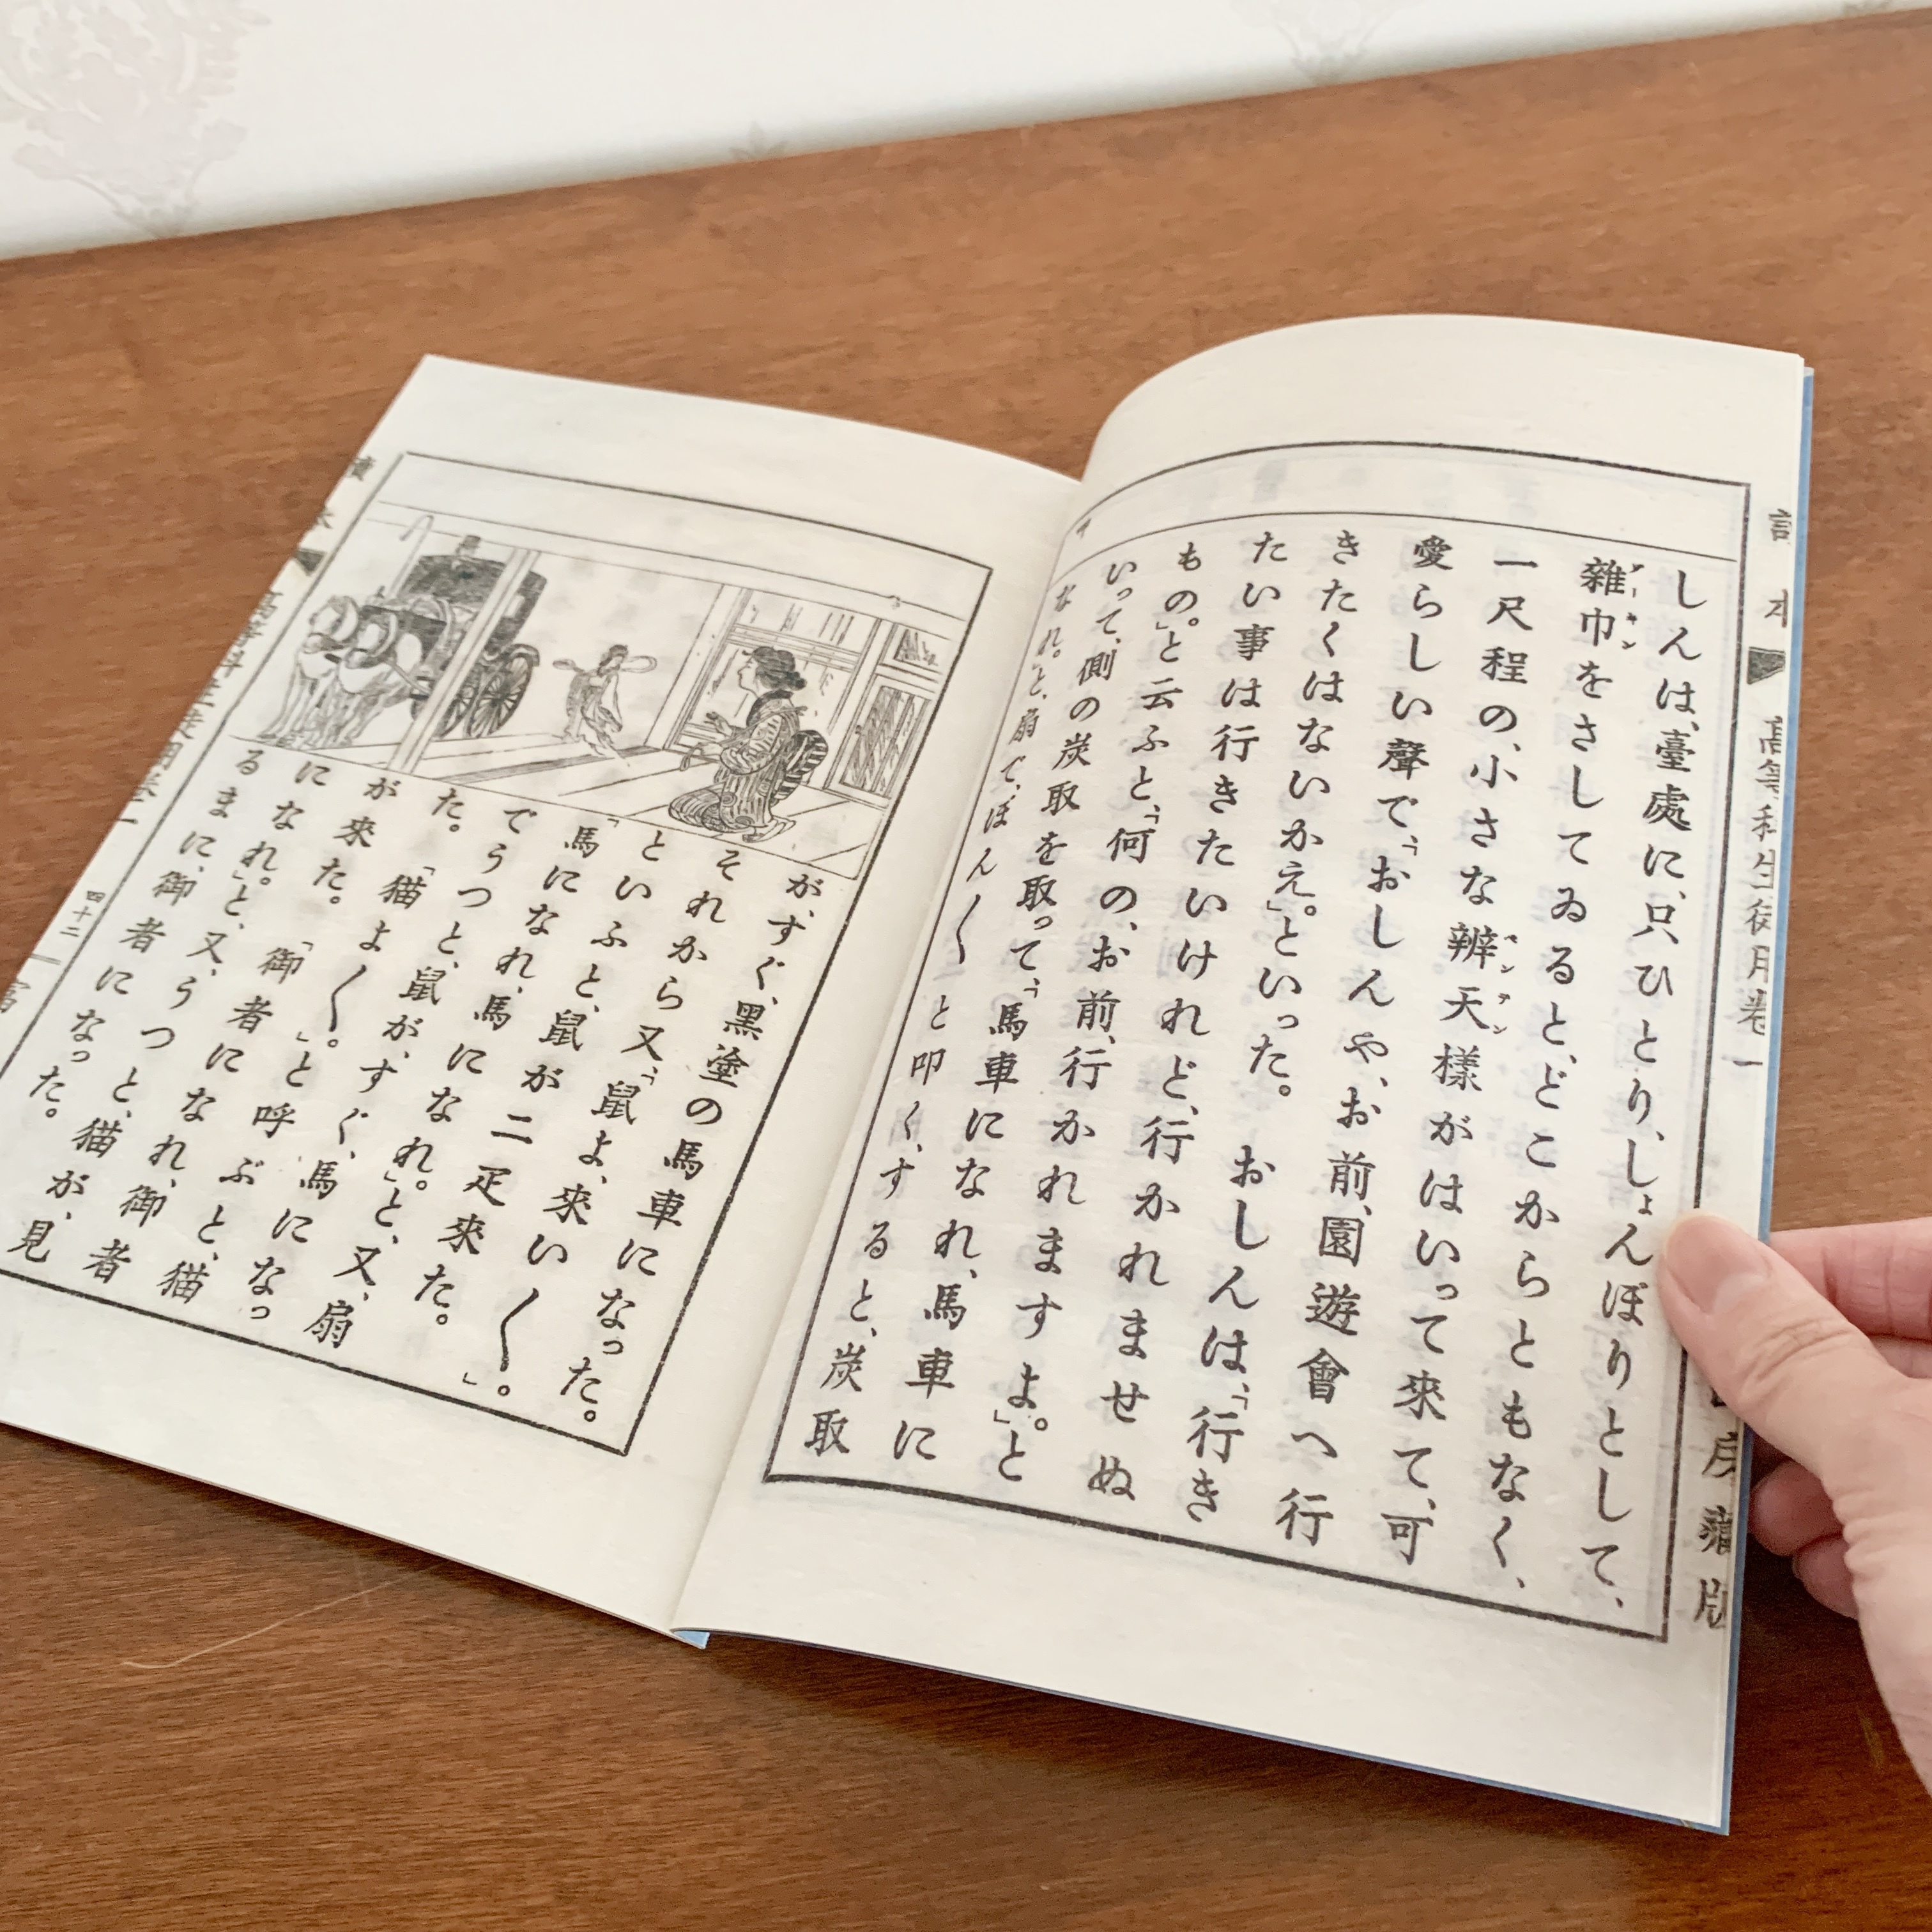 しんは、臺處に、只ひとり、しょんぼりとして、
雜巾をさしてゐると、どこからともなく、
一尺程の、小さな辨天樣がはいって來て、可
愛らしい聲で、「おしんや、お前、園遊會へ行
きたくはないかえ。」といった。　おしんは、「行き
たい事は行きたいけれど、行かれませぬ
もの。」と云ふと、「何の、お前、行かれますよ。」と
いって、側の炭取を取って、「馬車になれ、馬車に
なれ。」と、扇で、ぽん〱と叩く、すると、炭取
が、すぐ、黑塗の馬車になった。
それから又、「鼠よ、來い〱。」
といふと、鼠が二疋來た。
「馬になれ、馬になれ。」と、又、扇
でうつと、鼠が、すぐ、馬になっ
た。　「猫よ〱。」と呼ぶと、猫
が來た。　「御者になれ、御者
になれ。」と、又、うつと、猫が、見
るまに、御者になった。
高等科生徒用卷一
四十二